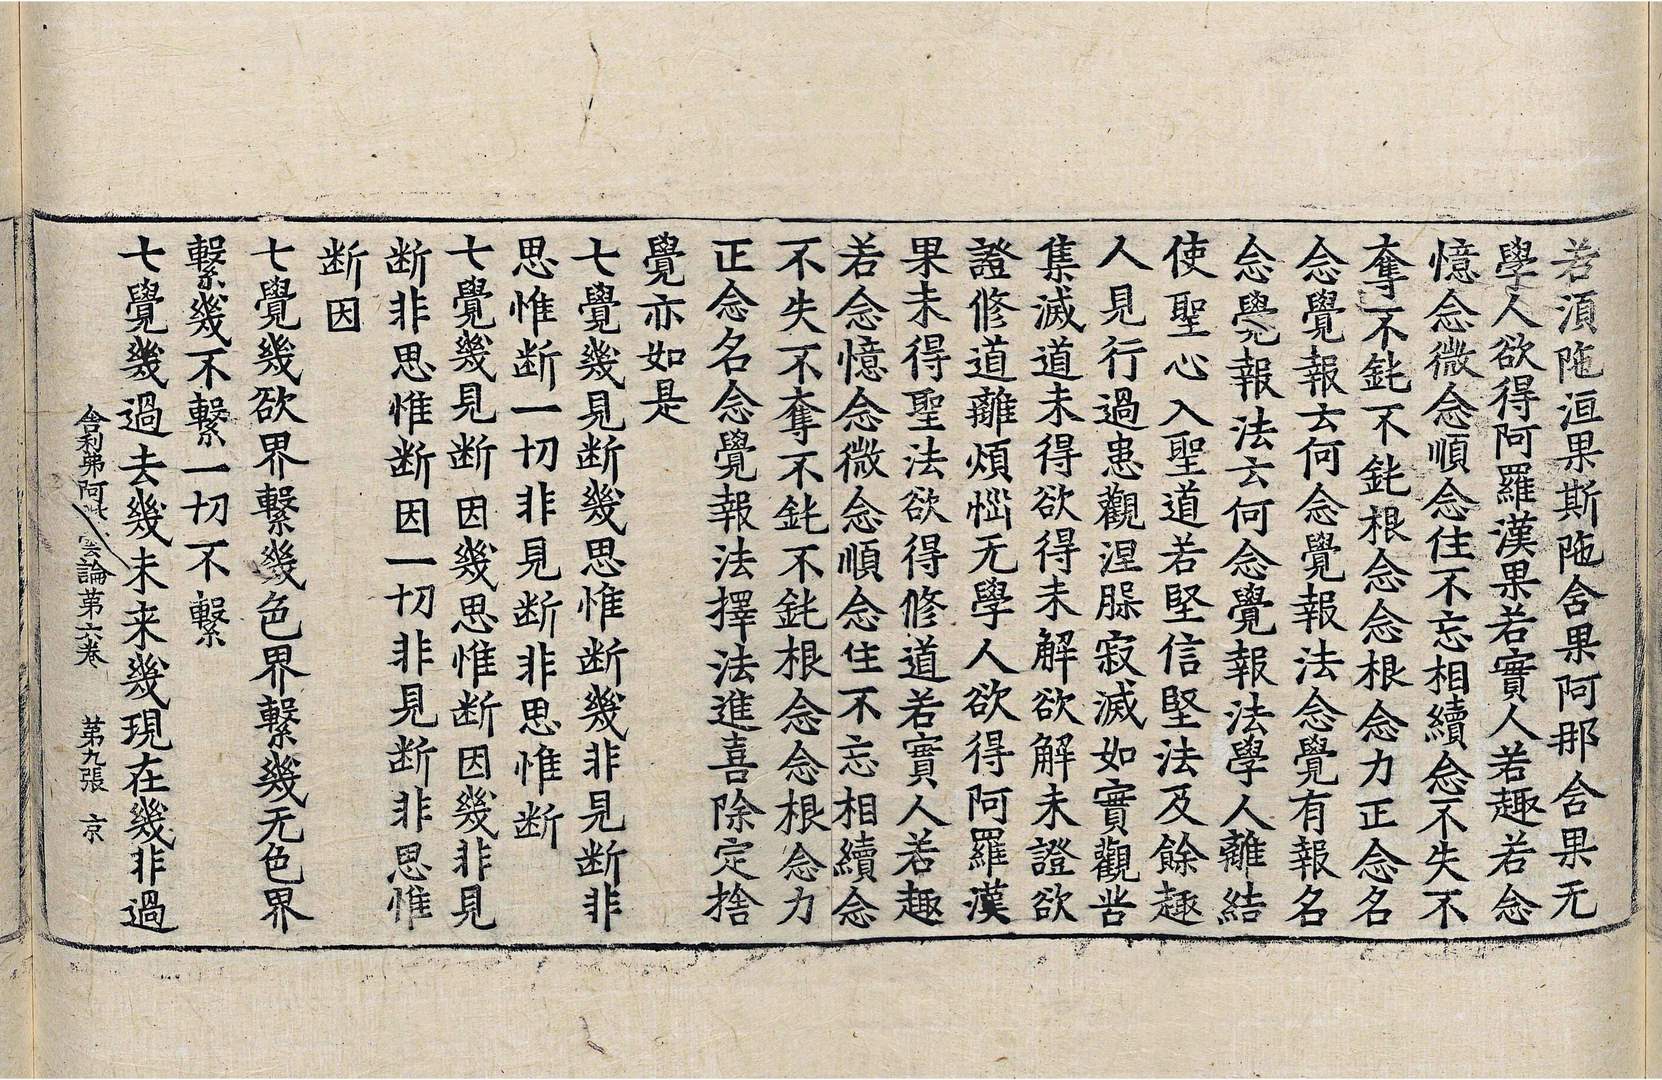 若湏陁洹果斯陁含果阿那含果无
學人欲得阿羅漢果若實人若趣若念
憶念微念順念住不忘相續念不失不
奪不鈍不鈍根念念根念力正念名
念覺報云何念覺報法念覺有報名
念覺報法云何念覺報法學人離結
使聖心入聖道若堅信堅法及餘趣
人見行過患觀涅槃寂滅如實觀苦
集滅道未得欲得未解欲解未證欲
證修道離煩惱无學人欲得阿羅漢
果未得聖法欲得修道若實人若趣
若念憶念微念順念住不忘相續念
不失不奪不鈍不鈍根念念根念力
正念名念覺報法擇法進喜除定捨
覺亦如是
七覺幾見断幾思惟断幾非見断非
思惟断一切非見断非思惟断
七覺幾見断因幾思惟断因幾非見
断非思惟断因一切非見断非思惟
断因
七覺幾欲界繫幾色界繫幾无色界
繫幾不繫一切不繫
七覺幾過去幾未来幾現在幾非過
舎利弗阿毗曇論第六卷 第九張 京